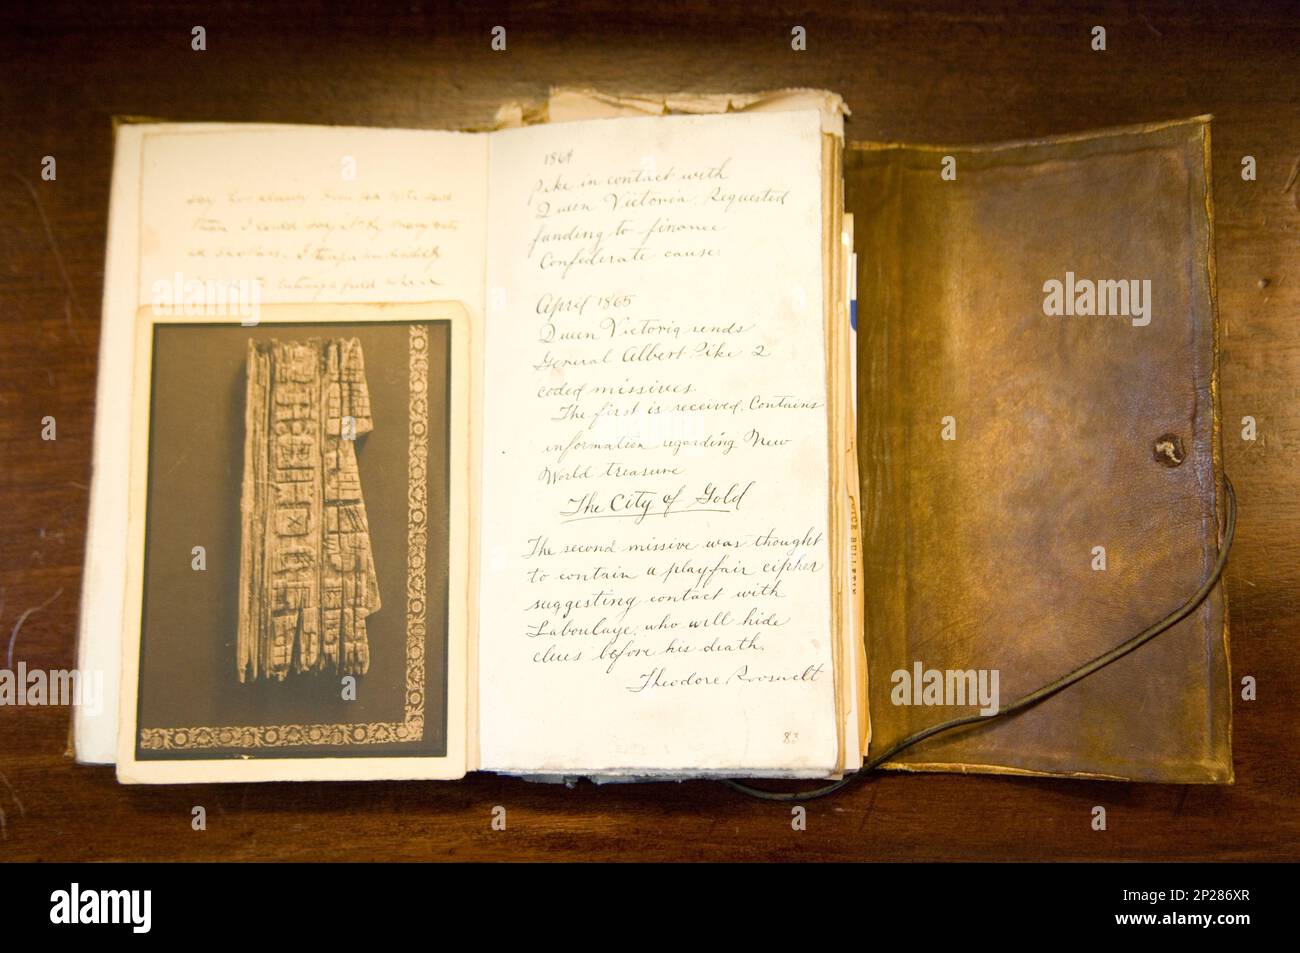 than I could say it by many
1864
Pike in contact with
Queen Victoria. Requested
funding to finance
Confederate cause.
April 1865
Queen Victoria sends
General Albert Pike 2
coded missives.
The first is received. Contains
information regarding New
World treasure
The City of Gold
The second missive was thought
to contain a playfair cipher
suggesting contact with
Laboulaye, who will hide
clues before his death.
Theodore Roosevelt
83
VICE BULLETIN
a
alamy
alamy
Image ID: 2P286XR
www.alamy.com